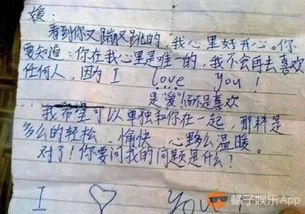 媛：
看到你又蹦又跳的，我心里好开心。你
要知道：你在我心里是唯一的，我不会再去喜欢
任何人，因为 I love you！
是“爱”而不是喜欢
我希望可以单独和你在一起，那样是
多么的轻松、愉快、心里多么温暖。
对了！你要问我的问题是什么？
I ♡ You
橘子娱乐App